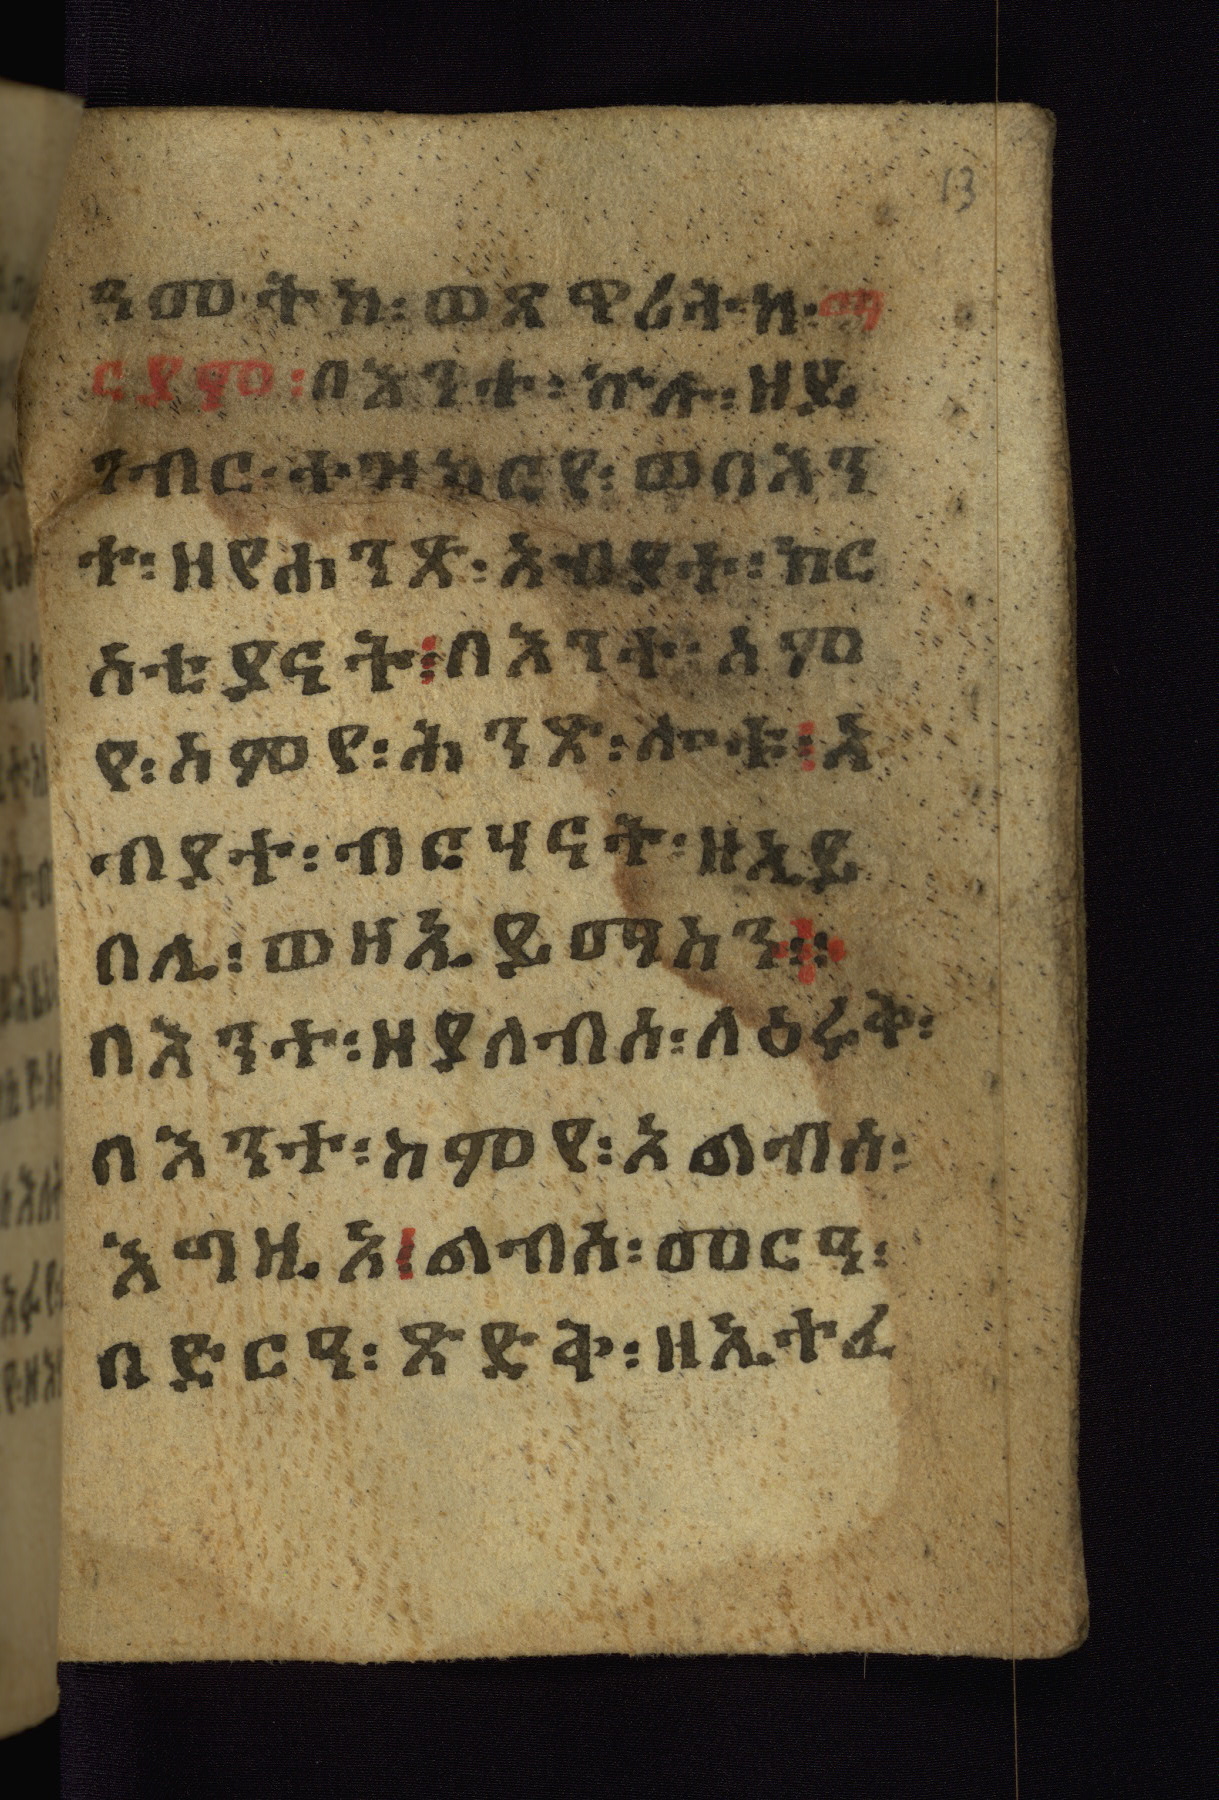 13
ዓመትኪ፡ወጸዋሪትኪ፡ማ
ርያም፡በእንተ፡ኵሉ፡ዘይ
ንብር፡ተዝካርየ፡ወበእን
ተ፡ዘየሐንጽ፡አብያተ፡ክር
ስቲያናት፡በእንተ፡ስም
የ፡ስምየ፡ሕንጽ፡ሎቱ፡አ
ብያተ፡ብርሃናት፡ዘኢይ
በሊ፡ወዘኢይማስን።
በእንተ፡ዘያለብስ፡ለዕሩቅ፡
በእንተ፡ስምየ፡አልብስ፡
እግዚአ፡ልብሰ፡መርዓ፡
በድርዓ፡ጽድቅ፡ዘኢተፈ